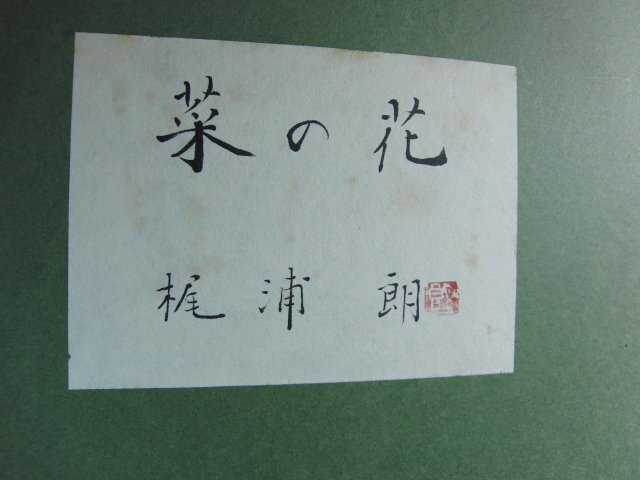 菜の花
梶浦 朗